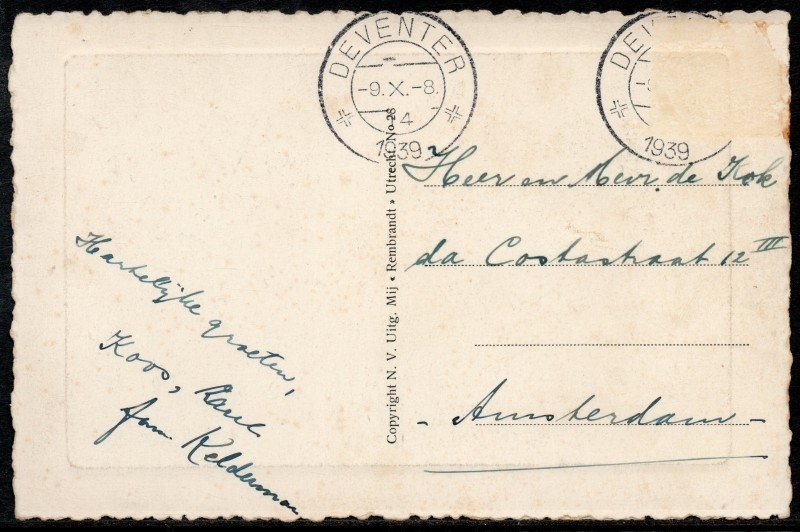 DEVENTER
-9.X.-8.
4
1939
DE
1939
Copyright N. V. Uitg. Mij « Rembrandt » Utrecht No 28
Heer en Mevr. de Kok
da Costastraat 12 III
- Amsterdam -
Hartelijke groeten,
Koos, Karel
fam. Kelderman